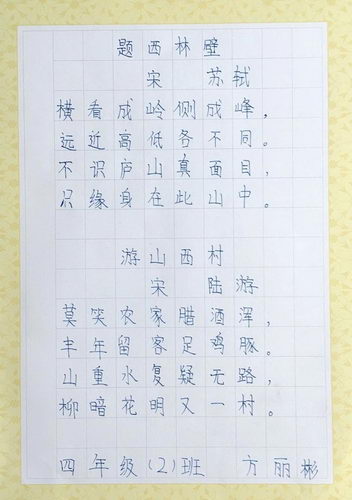 题西林壁
宋 苏轼
横看成岭侧成峰，
远近高低各不同。
不识庐山真面目，
只缘身在此山中。
游山西村
宋 陆游
莫笑农家腊酒浑，
丰年留客足鸡豚。
山重水复疑无路，
柳暗花明又一村。
四年级（2）班 方丽彬